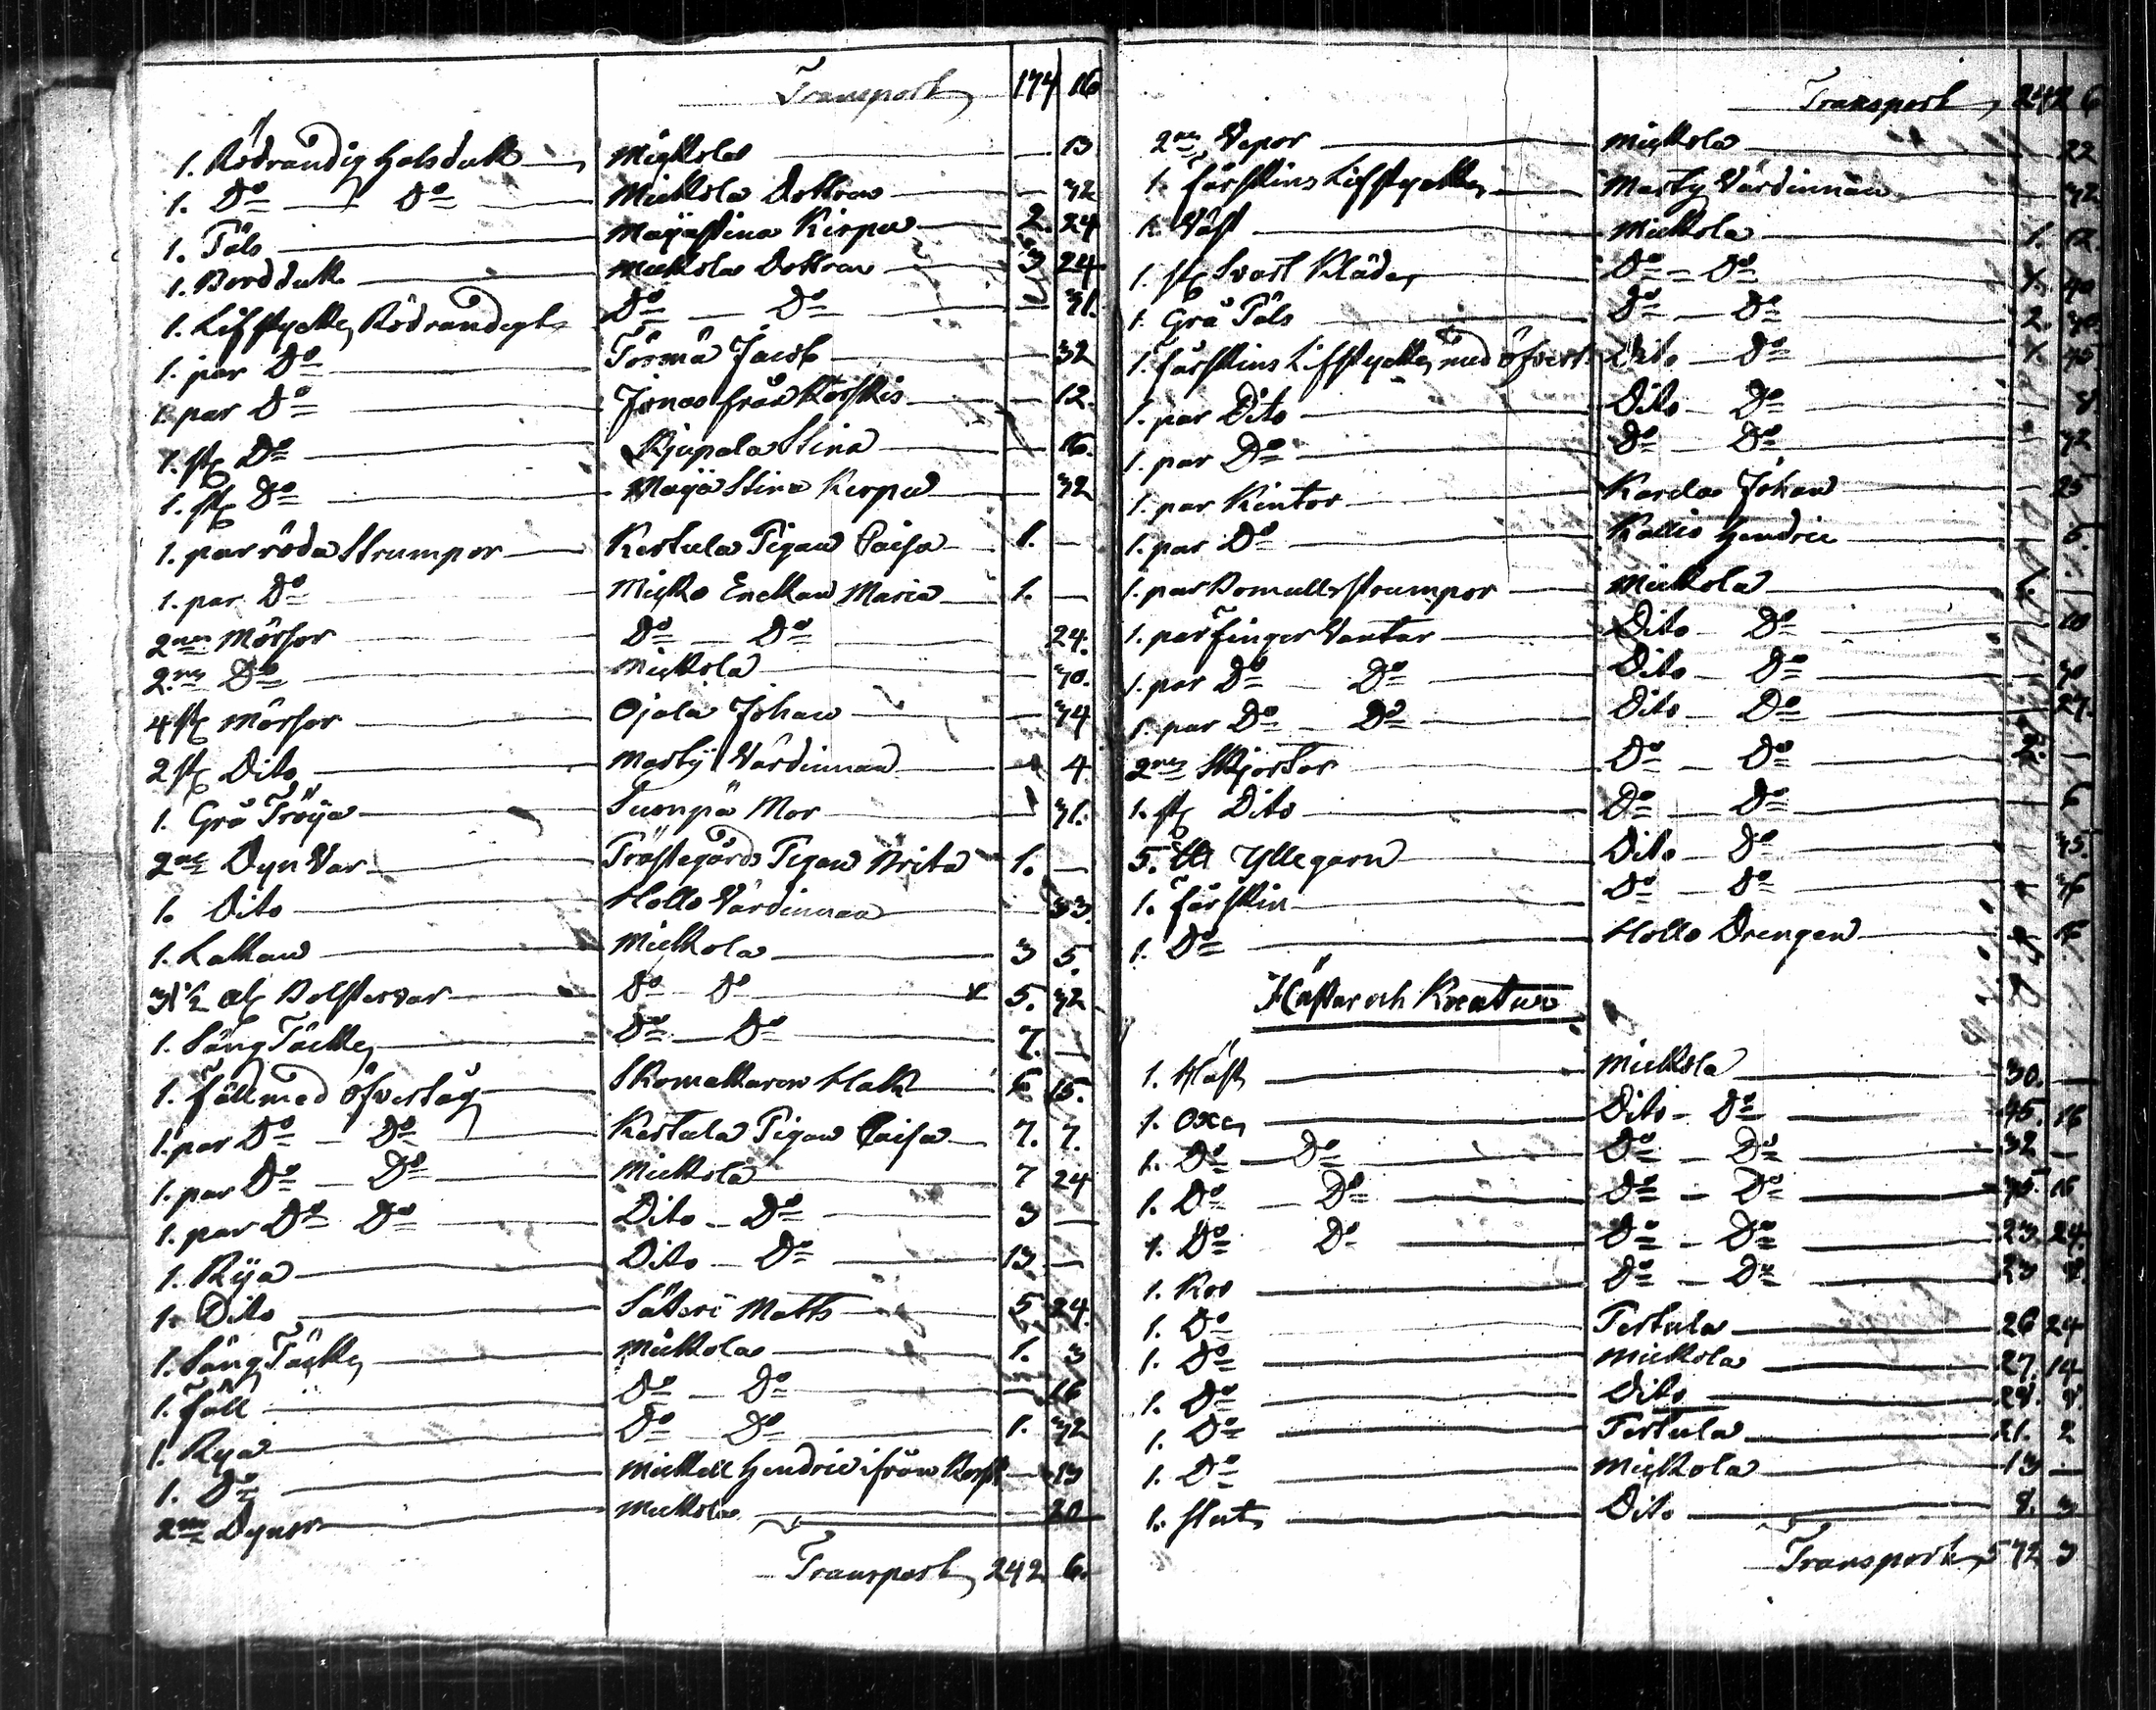 Transport 174 16
1. Rödrandig Halsduk Mickola 13
1. Do Do Mickola Dottran 32
1. Päls Maja Stina Kirpu 2. 24
1. Bordduk Mickola Dottran 3 24
1. Lifstycke Rödrandigt Do Do 31.
1. par Do Törmä Jacob 32
1. par Do Jonas från Korskis 12.
1. st Do Stina 16.
1. st Do Maja Stina Kirpu 32
1. par röda Strumpor Kertula Pigan Caisa 1. —
1. par Do Micko Enckan Maria 1. —
2ne Mössor Do Do 24.
2ne Do Mickola 40.
4 st Mössor Ojala Johan 34
2 st Dito Marty Värdinnan 4
1. Grå Tröija Tuonpä Mor 31.
2ne Dyn Var Prästegårds Pigan Brita 1. —
1. Dito Hollo Värdinnan 33.
1. Lakan Mickola 3 5.
3 1/2 al Bolstervar Do Do 5. 32
1. Säng Täcke Do Do 7. —
1. Fäll med Öfvertåg Skomakaren Hall 6 15.
1. par Do Do Kertula Pigan Caisa 7. 7.
1. par Do Do Mickola 7 24
1. par Do Do Dito Do 3 —
1. Rija Dito Do 13 —
1. Dito Säteri Matts 5 24.
1. Säng Täcke Mickola 1. 3
1. Fäll Do Do 16
1. Rya Do Do 1. 32
1. Do Mickell Hendric ifrån 13
2ne Dynor Mickola 20
Transport 242 6.
Transport 242 6
2ne Vepor Mickola 22
1. Fårskins Lifstycke Marty Värdinnan 32
1. Väst Mickola 1. 12.
1. st Svart Kläde Do Do 40
1. Grå Päls Do Do 2. 40.
1. Fårskins Lifstycke med Öfvert. Dito Do 45
1. par Dito Dito Do 8
1. par Do Do Do 32.
1. par Kintor Karelas Johan 25
1. par Do Kallis Hendric 6.
1. par Bomulls strumpor Mickola
1. par Finger Vantar Dito Do 10
1. par Do Do Dito Do 40
1. par Do Do Dito Do 27.
2ne Skjortor Do Do 2. —
1. st Dito Do Do 6
5. Yllegarn Dito Do 45.
1. Fårskin Do Do 16
1. Do Hollo Drengen 16
Hästar och Kreatur
1. Häst Mickola 30. —
1. Oxe Dito Do 45. 16
1. Do Do Do Do 32 —
1. Do Do Do Do 35. 16
1. Do Do Do Do 23 24.
1. Koo Do Do 23 8.
1. Do Tertula 26 24
1. Do Mickola 27. 14
1. Do Dito 28. 8.
1. Do Tertula 21. 2
1. Do Mickola 13 —
1. Stut Dito 8. 3
Transport 572 3